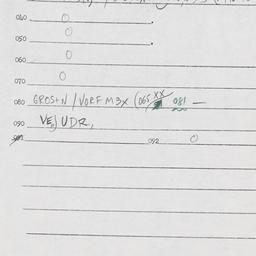 040 O
050 O
060 O
070 O
080 GROStN / VORF M3X (065 XX 081 —
090 VE, UDR,
092 O